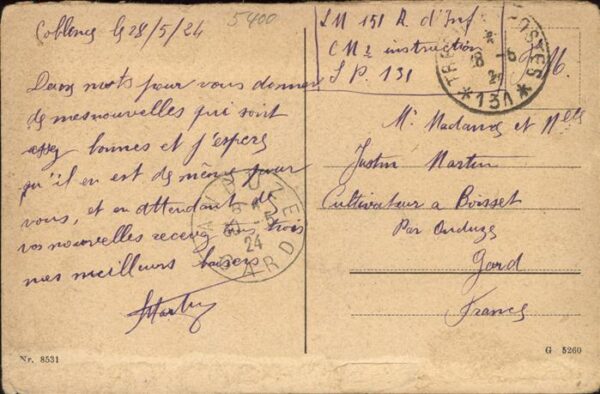 Coblence le 28/5/24
5400
Deux mots pour vous donner
de mes nouvelles qui sont
assez bonnes et j'espère
qu'il en est de même pour
vous, et en attendant de
vos nouvelles recevez tous trois
mes meilleurs baisers
Martin
Nr. 8531
151 R. d'Inf
instruction
S P. 131
F.M.
POSTES
*131*
ANDUZE
24
GARD
Mr Madame et Melle
Justin Martin
Cultivateur a Boisset
Par Anduze
Gard
France
G 5260